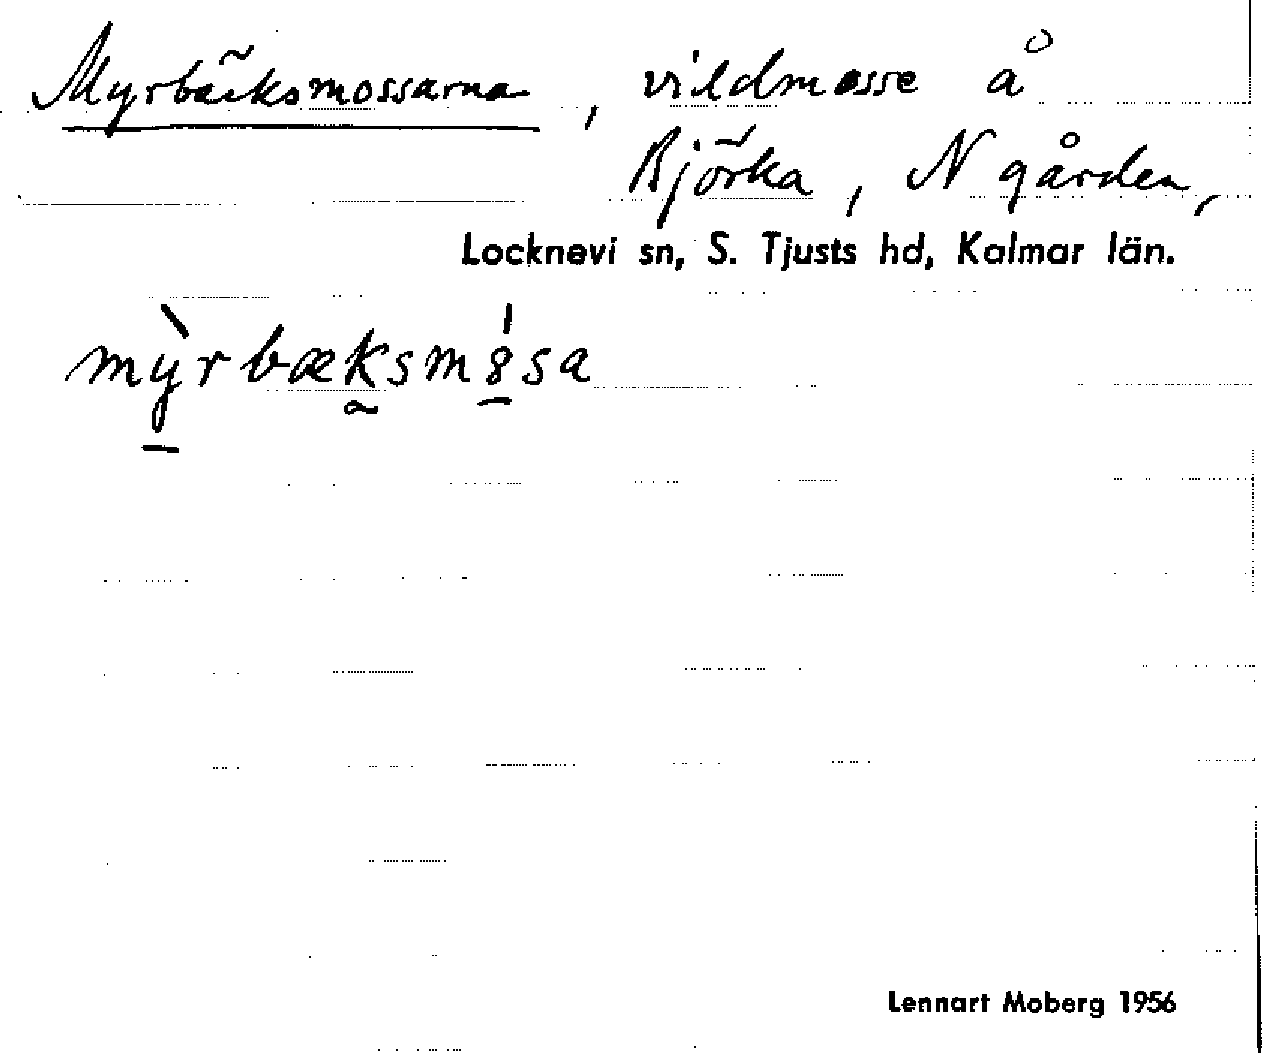 Myrbäksmossarna, vildmosse å
Björka, N gården,
Locknevi sn, S. Tjusts hd, Kalmar län.
mỳrbæksm8́sa
Lennart Moberg 1956